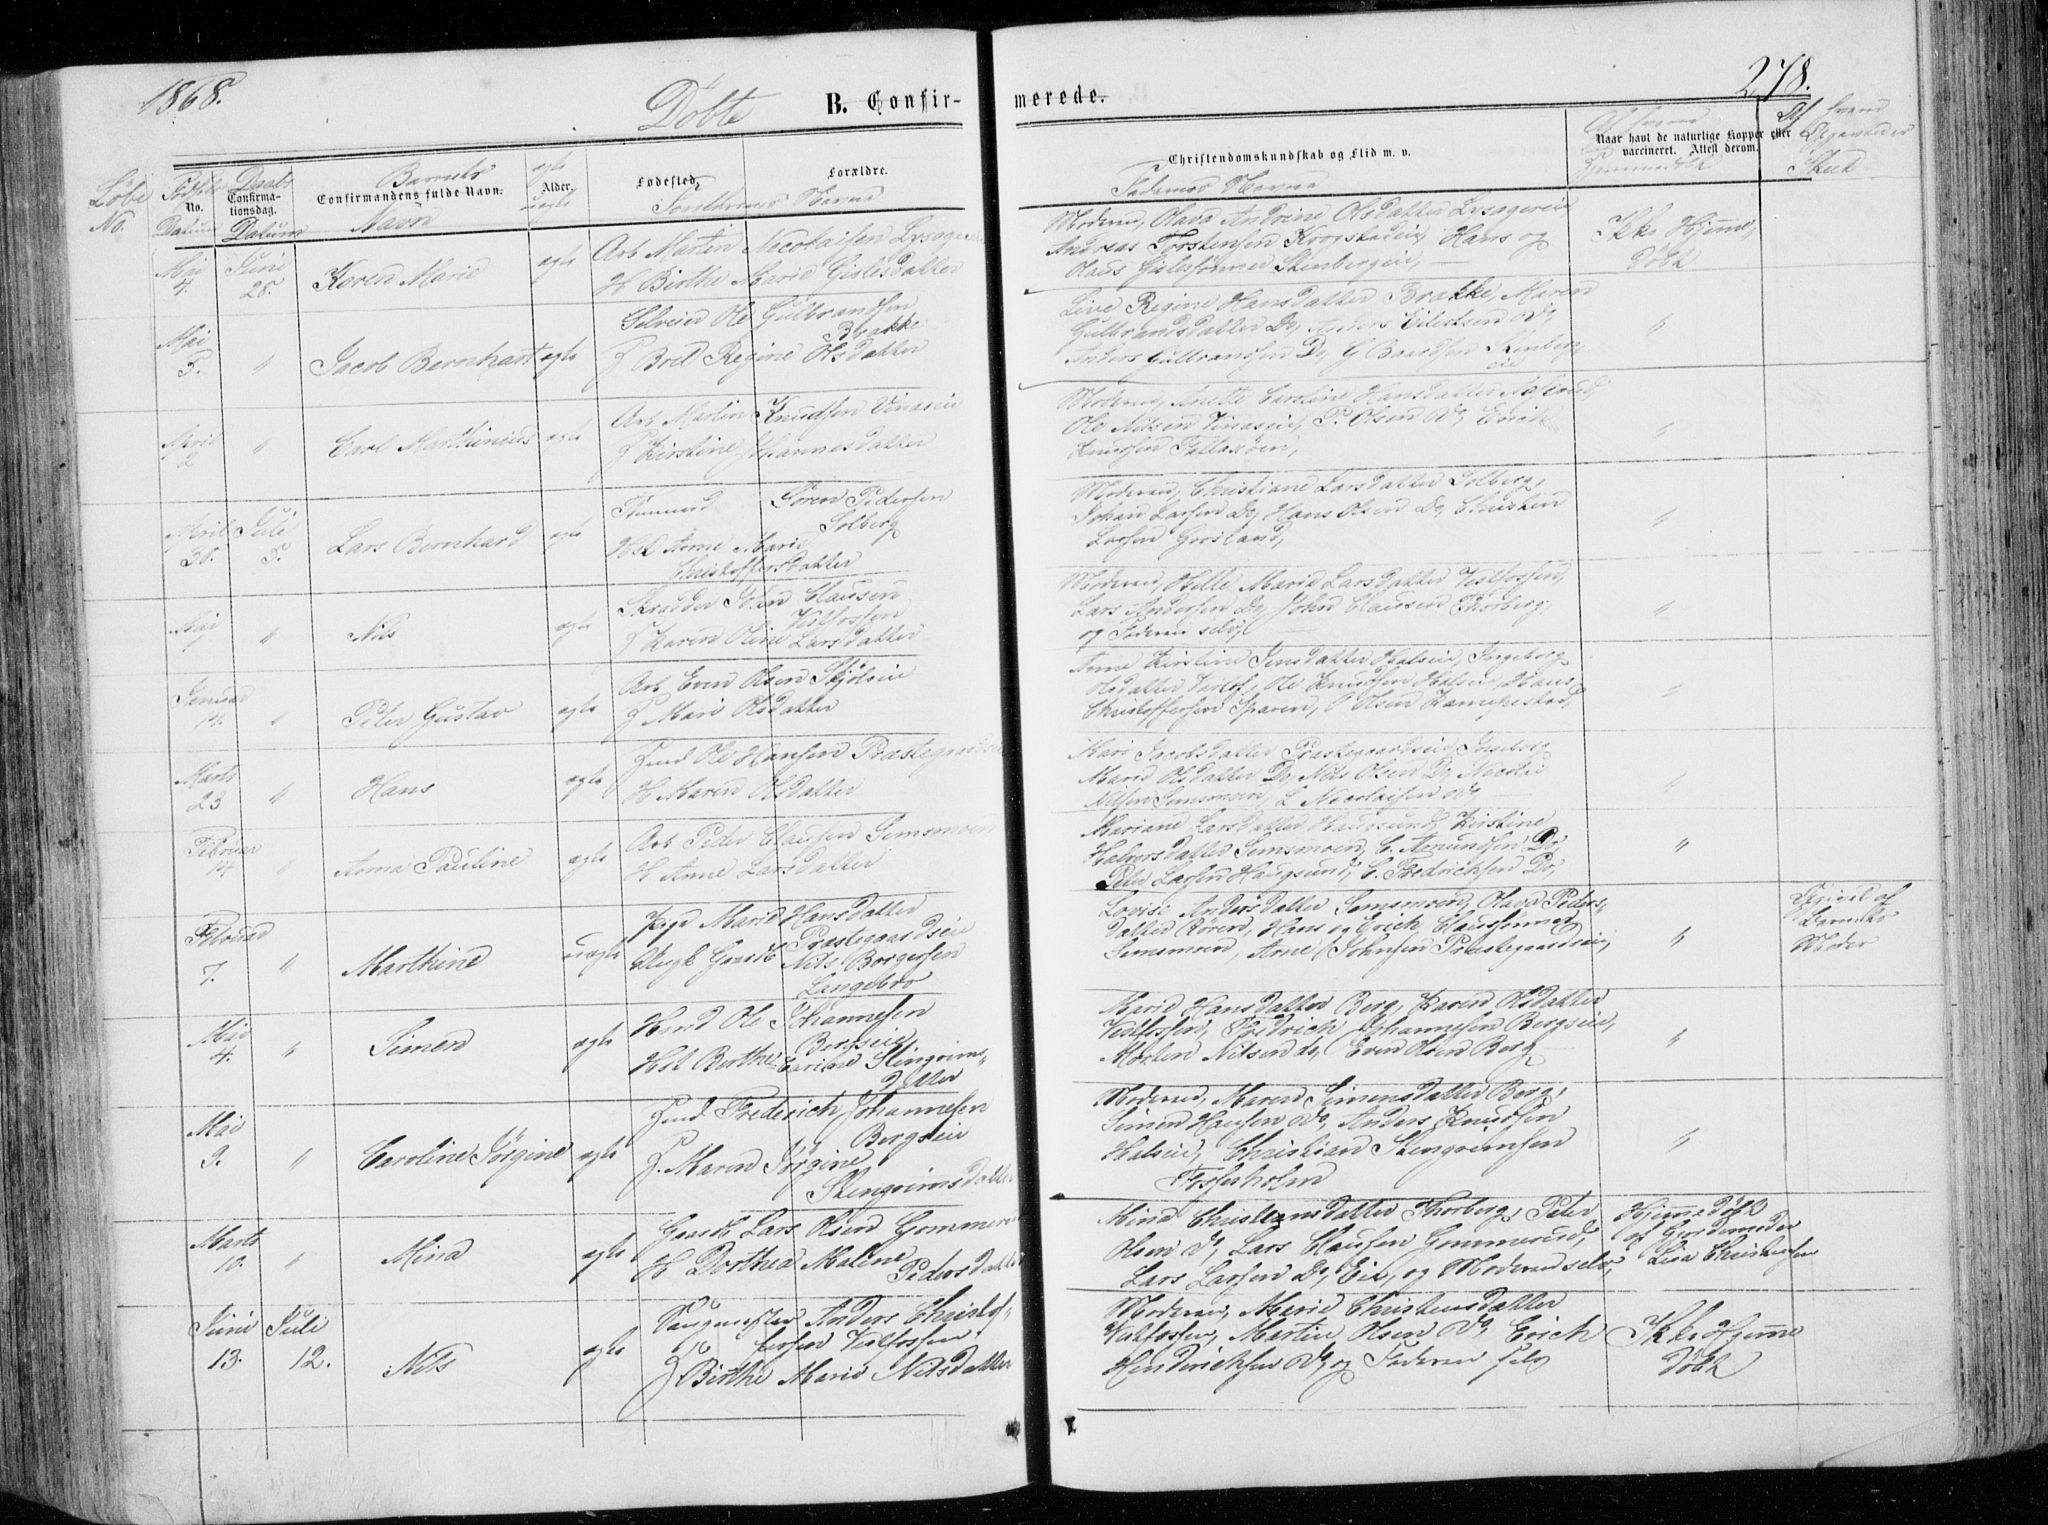 1868.
Döbte
B. Confir-
merede.
278.
Löbe No.
Födte No. Datum
Daabs Confirmationsdag. Datum
Barnets Confirmandens fulde Navn. Navn
ægte Alder. uægte
Fødested.
Forældre.
Forældrenes Navne
Christendomskundskab og Flid m. v.
Faddernes Navne
Naar havt de naturlige Kopper eller vaccineret. Attest derom.
Hjemmedöbt
Mai 4. Juni 28. Karen Marie ægte
Arb Martin Nicolaisen Lysagereie
H Birthe Marie Gislesdatter
Moderen, Olava Andrine Olsdatter Lysagereie
Andreas Torstensen Krogstadeie, Hans og
Olaus Gislesönner Stenbergeie,
Ikke Hjemme,
döbt
Mai 5. " Jacob Bernhart ægte
Selveier Ole Gulbrandsen
Brække
F Boel Regine Olsdatter
Live Regine Hansdatter Brække, Maren
Gulbrandsdatter Do, Anders Eilertsen do,
Anders Gulbrandsen Do, G Baardsen Stenberg
eie
"
April 2 " Carl Marthinius ægte
Arb Martin Knudsen Vinaseie
F Kirstine Johannesdatter
Moderen, Anette Caroline Hansdatter
Ole Nilsen Vinaseie, P. Olsen do, Erick
Knudsen
"
April 30. Juli 5. Lars Bernhard ægte
Tömmermd Sören Pedersen
Solberg
Hst Anne Marie
Christoffersdatter
Moderen, Christiane Larsdatter Solberg,
Johan Larsen Do, Hans Olsen Do, Christen
Larsen
"
Mai " Nils ægte
Skræder John Clausen
Vestfossen
F Karen Oline Larsdatter
Moderen, Helle Marie Larsdatter Vestfossen,
Lars Andersen Do, John Clausen Thorberg,
og Faderen selv,
"
Januar 14. " Peter Gustav ægte
Arb Even Olsen Skjölseie
F Mari Olsdatter
Anne Kirstine Jensdatter Halseie, Ingeborg
Olsdatter Vestfos, Ole Knudsen Halseie, Hans
Christoffersen Sparen, P Olsen
"
Marts 23 " Hans ægte
Hmd Ole Hansen Præstegaardseie
H Maren Olsdatter
Kari Jacobsdatter Præstegaardseie, Ingeborg
Marie Olsdatter Do, Nils Olsen Do, Nicolai
Nilsen Semsmoen, L Nicolaisen do,
"
Februar 14 " Anna Pauline ægte
Arb Peder Clausen Semsmoen
H Anne Larsdatter
Mariane Larsdatter Haugsund, Kirstine
Halvorsdatter Semsmoen, C. Amundsen Do,
Peter Larsen Haugsund, C. Fredricksen Do,
"
Februar 7. " Marthine uægte
Pige Marie Hansdatter
Præstegaardseie
Ungk Gaardb Nils Borgersen
Langebro
Lovise Andersdatter Semsmoen, Olava Peders,
datter Tören, Hans og Erick Claussönner
Semsmoen, Arne Johnsen Præstegaardseie,
"
Opgivet af
Barnets
Moder
Mai 4. " Simen ægte
Hmd Ole Johannesen
Bergseie
Hst Berthe Carine Stengrims-
datter
Marie Hansdatter Berg, Karen Olsdatter
Vestfossen, Fredrich Johannesen Bergseie,
Morten Nilsen do, Even Olsen Berg
"
Mai 9. " Caroline Jörgine ægte
Hmd Frederich Johannesen
Bergseie
F. Maren Jörgine
Stengrimsdatter
Moderen, Maren Simensdatter Berg,
Simen Hansen do, Anders Knudsen
Halseie, Christian Stengrimsen
Fossesholm
"
Marts 10. " Mina ægte
Gaardb Lars Olsen Gommerud
H Dorthea Malene
Pedersdatter
Mina Christensdatter Thorberg, Peter
Olsen do, Lars Clausen Gommerud,
Lars Larsen Do, Eie, og Moderen selv,
Hjemedöbt
af Gjordemoder
Lisa Christensen
Juni 13. Juli 12. Nils ægte
Anders Christof-
fersen Vestfossen
F Birthe Marie Nilsdatter
Moderen, Marie Christensdatter
Vestfossen, Martin Olsen do, Erick
Hendrichsen do, og Faderen selv
Ikke Hjemme
döbt